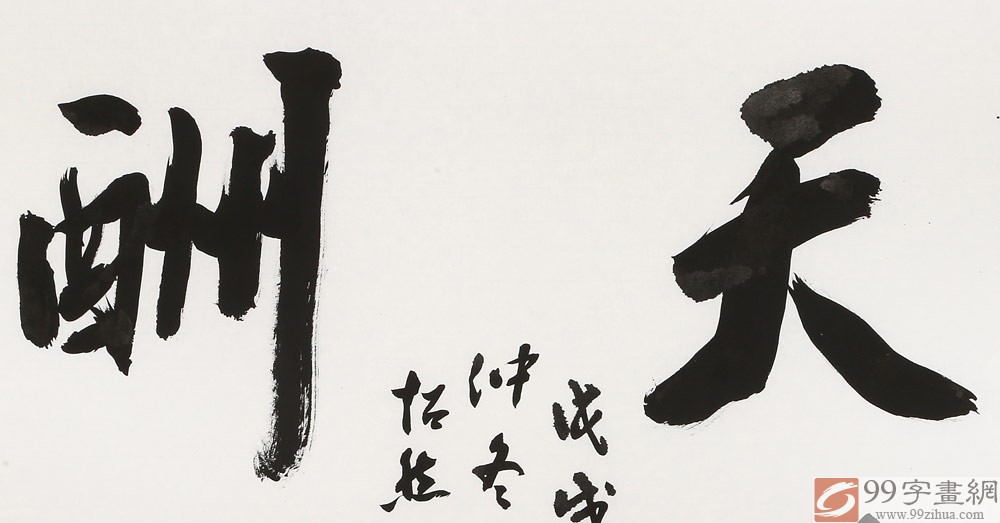 天
酬
戊戌
仲冬
99字畫網
www.99zihua.com